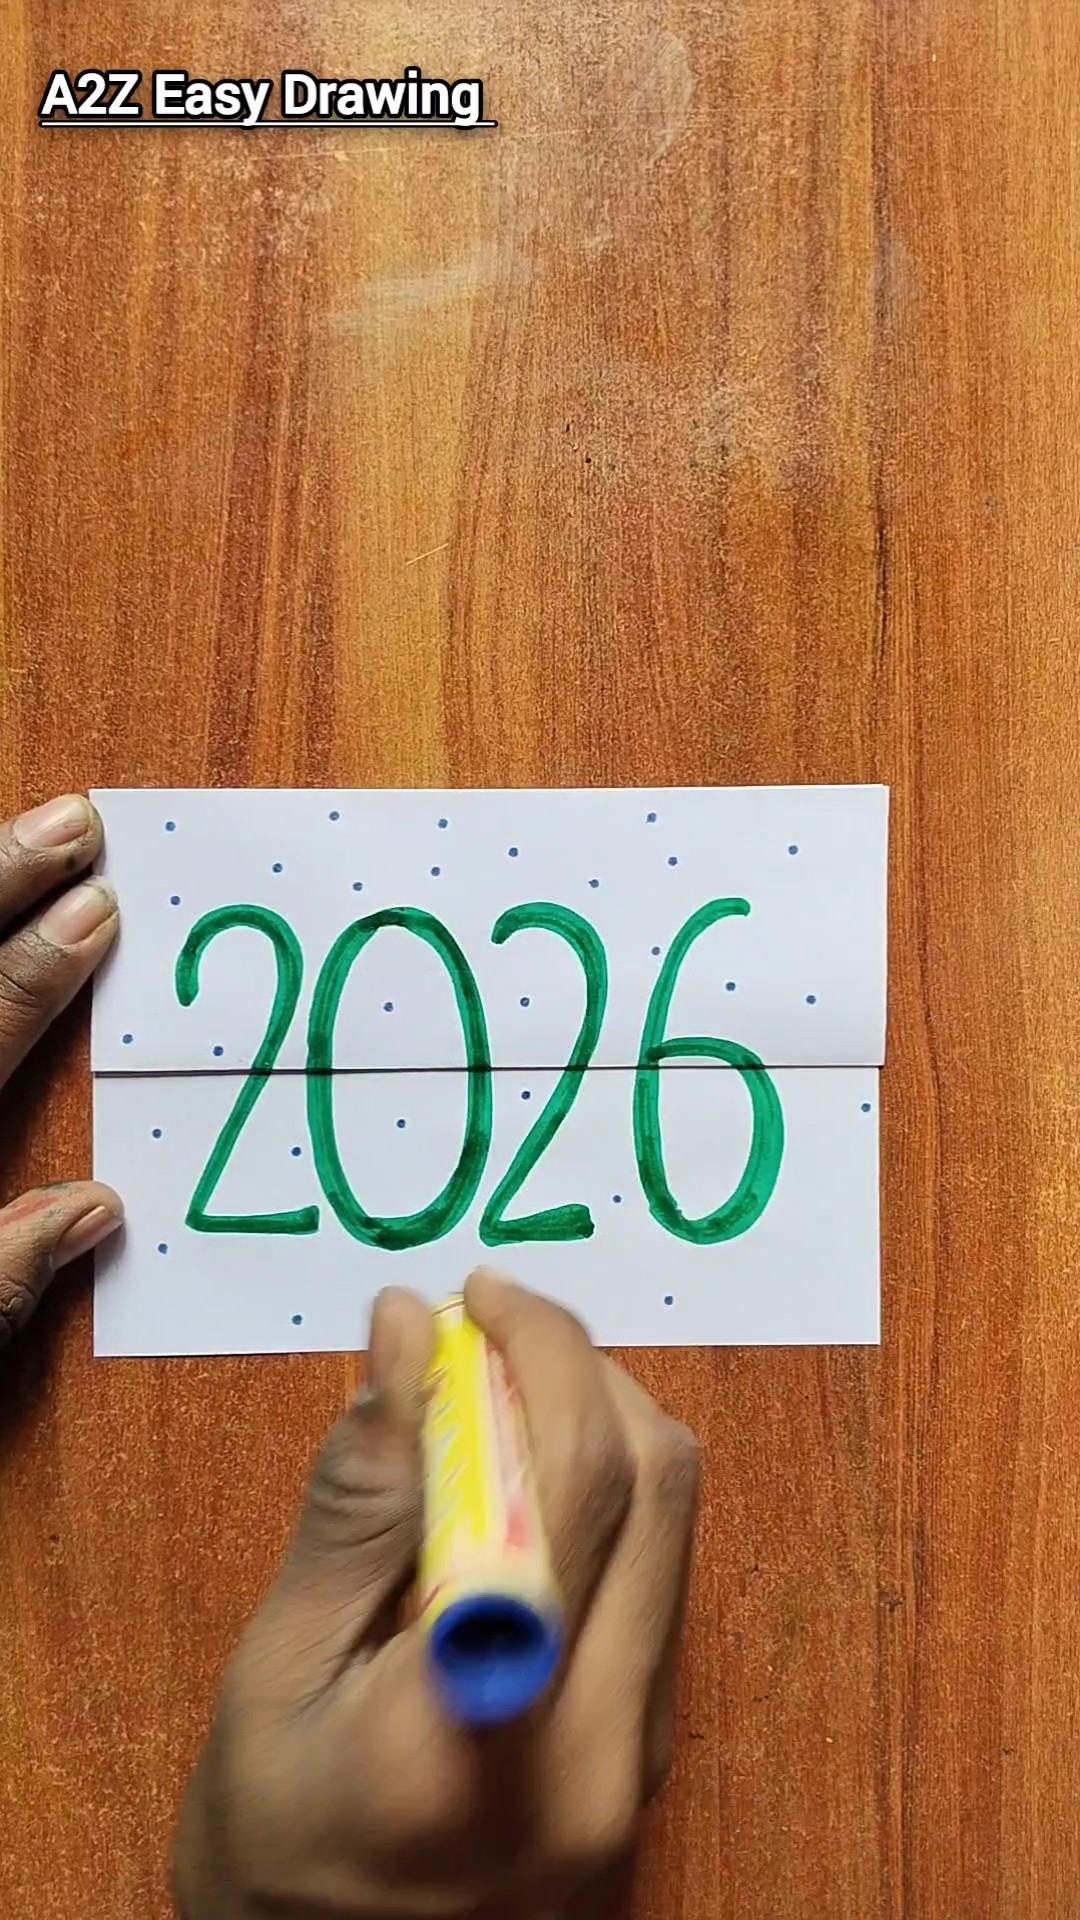 A2Z Easy Drawing
2026